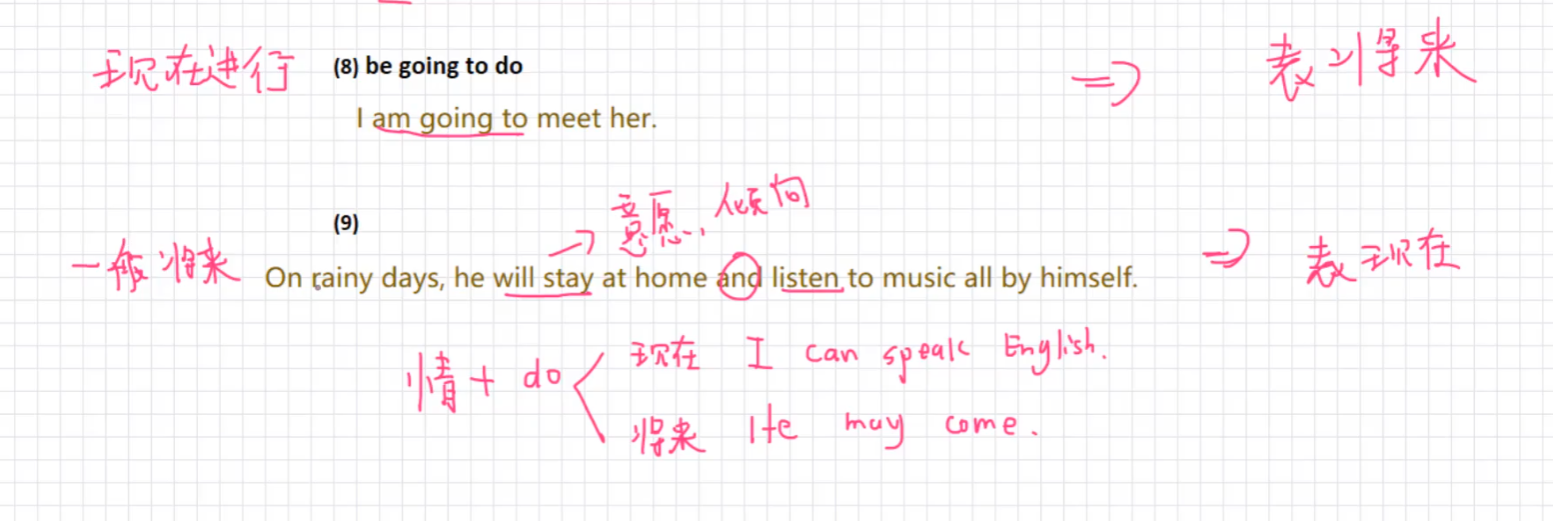 现在进行 (8) be going to do => 表将来
I am going to meet her.
→ 意愿,倾向
(9)
一般将来 On rainy days, he will stay at home and listen to music all by himself. => 表现在
情 + do < 现在 I can speak English.
将来 He may come.